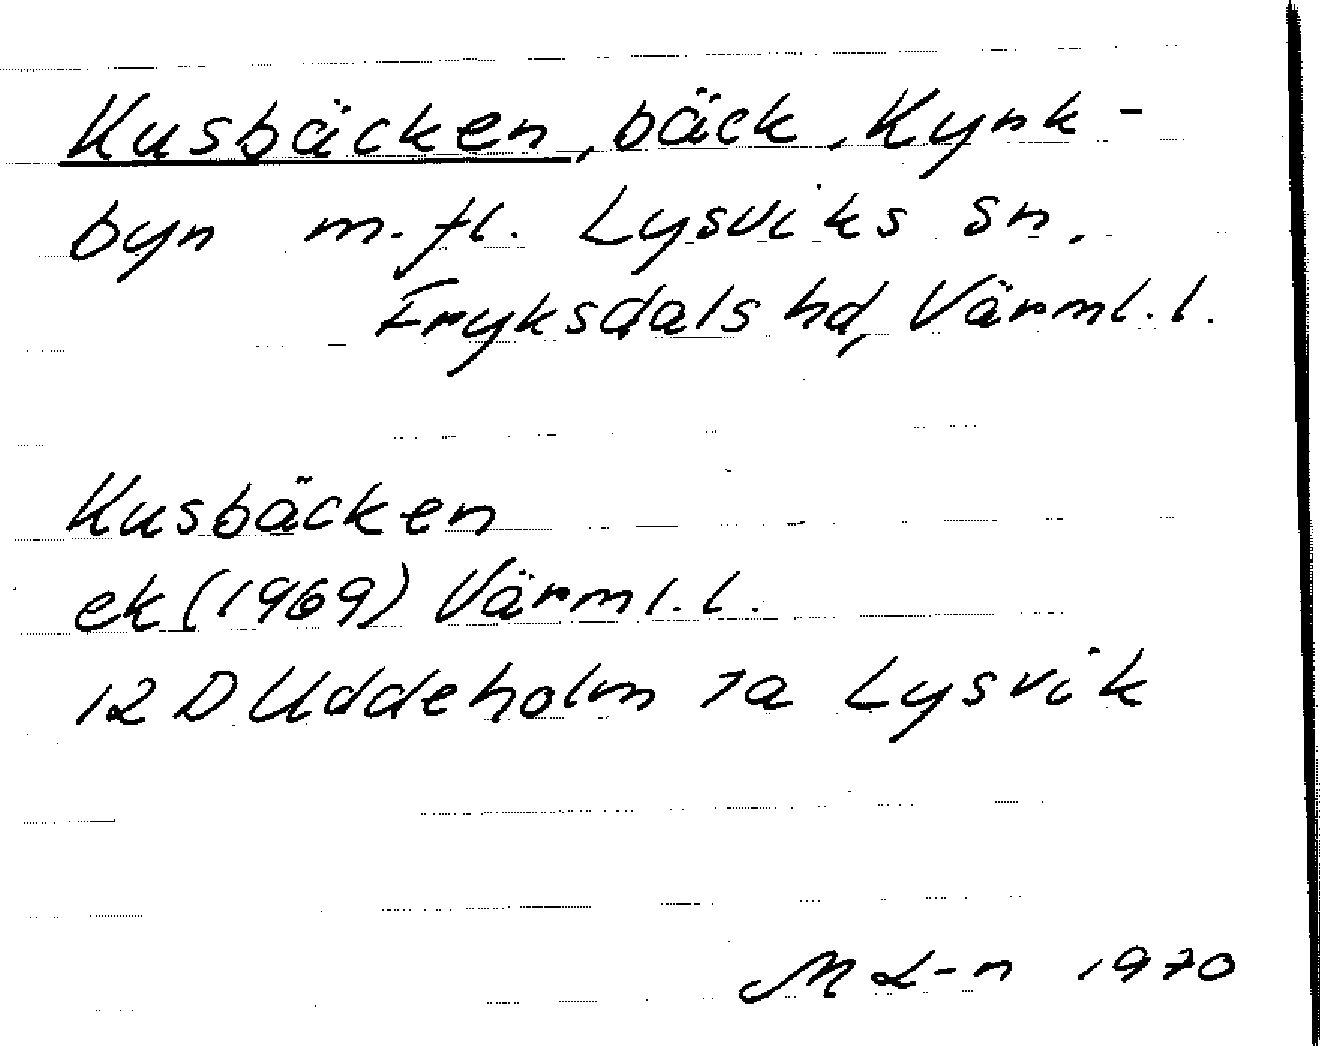 Kusbäcken, bäck, Kynk-
byn m.fl. Lysviks sn,
Fryksdals hd, Värml.l.
Kusbäcken
ek (1969) Värml.l.
12 D Uddeholm 7a Lysvik
M L-n 1970